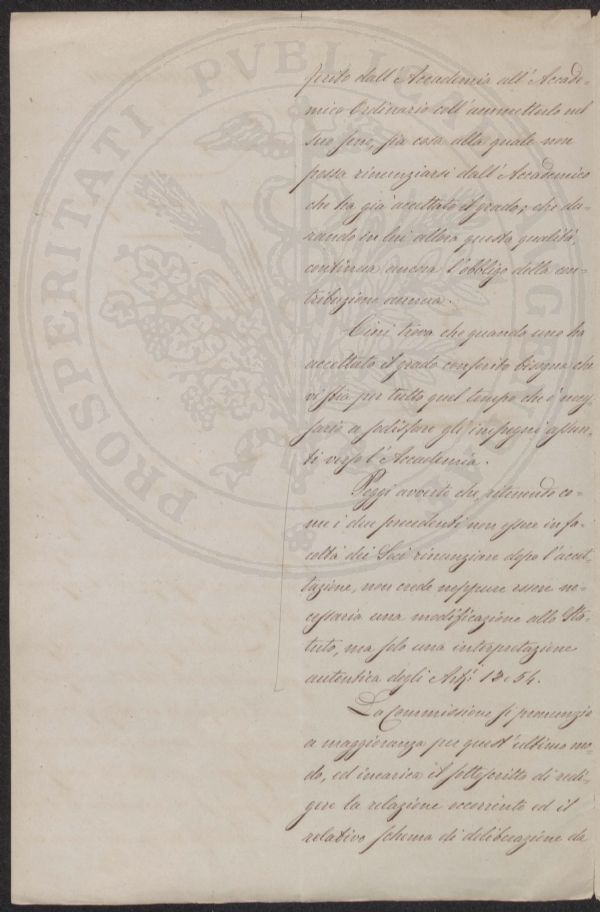 PROSPERITATI PVBLICAE AVGENDAE
ferito dall'Accademia all'Accade-
mico Ordinario coll'ammetterlo nel
suo seno, sia cosa alla quale non
possa rinunziarsi dall'Accademico
che ha già accettato il grado; che du-
rando in lui allora questa qualità,
continua ancora l'obbligo della con-
tribuzione annua.
Cini trova che quando uno ha
accettato il grado conferito bisogna che
vi stia per tutto quel tempo che è neces-
sario a sodisfare gli impegni assun-
ti verso l'Accademia.
Poggi avverte che, ritenendo co-
me i due precedenti non essere in fa-
coltà dei Soci rinunziare dopo l'accet-
tazione, non crede neppure essere ne-
cessaria una modificazione allo Sta-
tuto, ma solo una interpretazione
autentica degli Arti. 13 e 54.
La Commissione si pronunzia
a maggioranza per quest'ultimo mo-
do, ed incarica il sottoscritto di redi-
gere la relazione occorrente ed il
relativo schema di deliberazione da